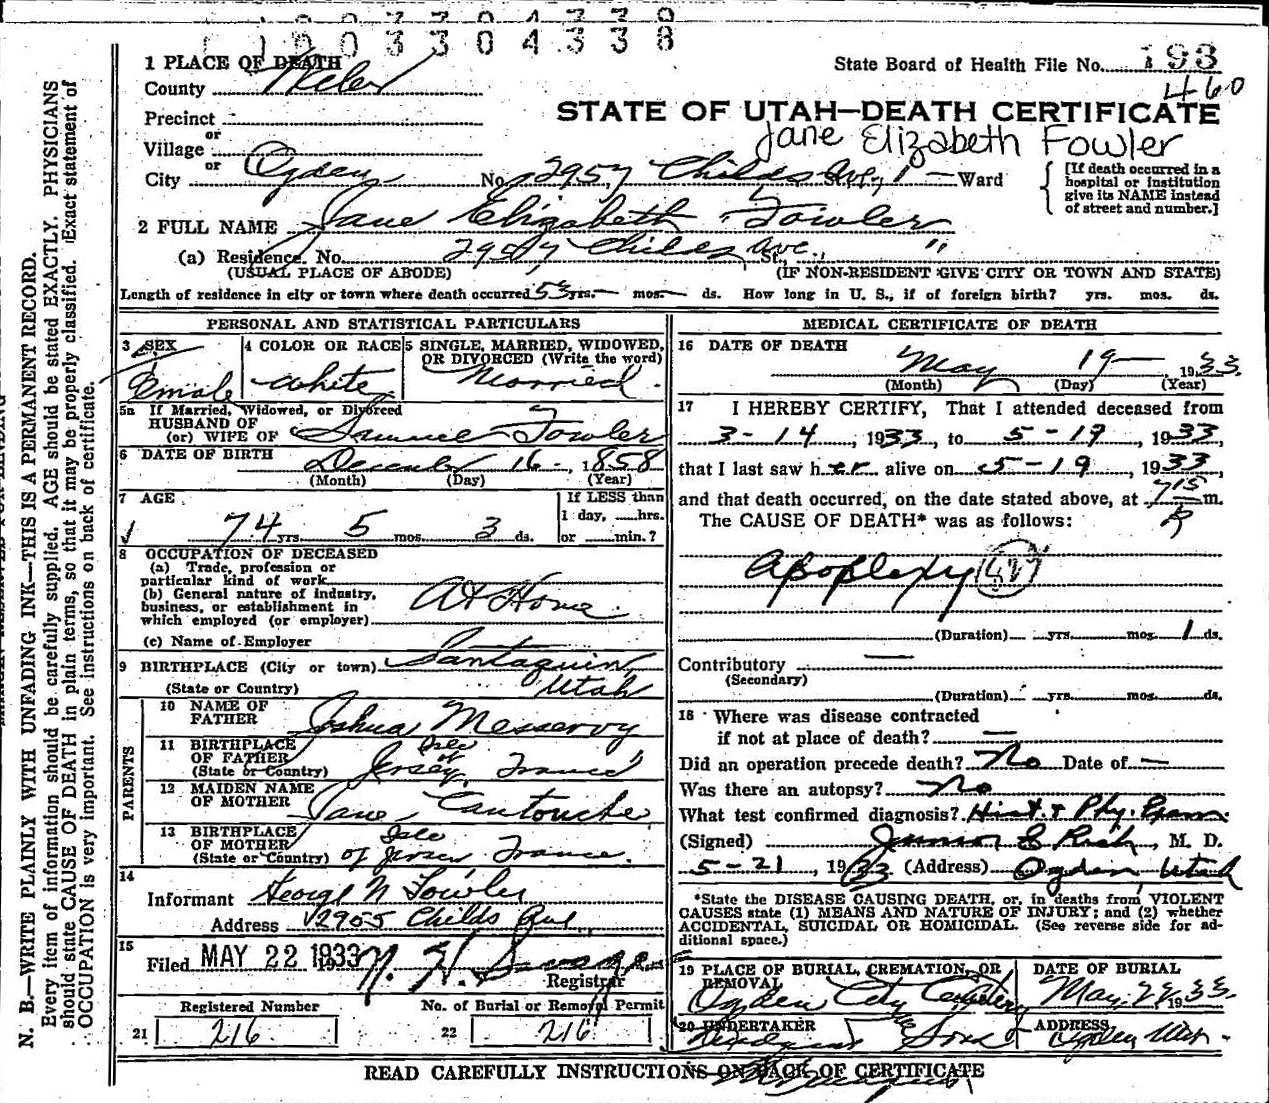 1 0 0 3 3 0 4 3 3 8
1 PLACE OF DEATH
State Board of Health File No. 193
County Weber
460
STATE OF UTAH—DEATH CERTIFICATE
Precinct
Jane Elizabeth Fowler
or
Village
or
City Ogden No. 2957 Childs Ave St., 1 Ward
[If death occurred in a hospital or institution give its NAME instead of street and number.]
2 FULL NAME Jane Elizabeth Fowler
(a) Residence. No. 2957 Childs Ave. St., "
(USUAL PLACE OF ABODE) (IF NON-RESIDENT GIVE CITY OR TOWN AND STATE)
Length of residence in city or town where death occurred 53 yrs. — mos. — ds. How long in U. S., if of foreign birth? yrs. mos. ds.
PERSONAL AND STATISTICAL PARTICULARS
3 SEX
Female
4 COLOR OR RACE
White
5 SINGLE, MARRIED, WIDOWED,
OR DIVORCED (Write the word)
Married
5a If Married, Widowed, or Divorced
HUSBAND OF
(or) WIFE OF Samuel Fowler
6 DATE OF BIRTH December 16 - 1858
(Month) (Day) (Year)
7 AGE
74 yrs. 5 mos. 3 ds.
If LESS than
1 day, ___hrs.
or ___min.?
8 OCCUPATION OF DECEASED
(a) Trade, profession or
particular kind of work
(b) General nature of industry,
business, or establishment in
which employed (or employer) At Home
(c) Name of Employer
9 BIRTHPLACE (City or town) Santaquin,
(State or Country) Utah
PARENTS
10 NAME OF
FATHER Joshua Messervy
11 BIRTHPLACE
OF FATHER
(State or Country) Isle of Jersey, France
12 MAIDEN NAME
OF MOTHER Jane
13 BIRTHPLACE
OF MOTHER
(State or Country) Isle of Jersey France.
14
Informant George N Fowler
Address 2955 Childs Ave
15
Filed MAY 22 1933
Registrar
Registered Number No. of Burial or Removal Permit
21 216 22 216
MEDICAL CERTIFICATE OF DEATH
16 DATE OF DEATH
May 19 — 1933.
(Month) (Day) (Year)
17 I HEREBY CERTIFY, That I attended deceased from
3-14, 1933, to 5-19, 1933,
that I last saw her alive on 5-19, 1933,
and that death occurred, on the date stated above, at 7 15 P m.
The CAUSE OF DEATH* was as follows:
Apoplexy
(Duration) yrs. mos. 1 ds.
Contributory —
(Secondary)
(Duration) yrs. mos. ds.
18 Where was disease contracted
if not at place of death? —
Did an operation precede death? No Date of —
Was there an autopsy? No
What test confirmed diagnosis? Hist. & Phy. Exam.
(Signed) Junior E Rich, M. D.
5-21, 1933 (Address) Ogden, Utah
*State the DISEASE CAUSING DEATH, or, in deaths from VIOLENT
CAUSES state (1) MEANS AND NATURE OF INJURY; and (2) whether
ACCIDENTAL, SUICIDAL OR HOMICIDAL. (See reverse side for ad-
ditional space.)
19 PLACE OF BURIAL, CREMATION, OR
REMOVAL
Ogden City Cemetery
DATE OF BURIAL
May 1933.
20 UNDERTAKER
Sons
ADDRESS
Ogden Utah
READ CAREFULLY INSTRUCTIONS ON BACK OF CERTIFICATE
N. B.—WRITE PLAINLY WITH UNFADING INK—THIS IS A PERMANENT RECORD.
Every item of information should be carefully supplied. AGE should be stated EXACTLY. PHYSICIANS
should state CAUSE OF DEATH in plain terms, so that it may be properly classified. Exact statement of
OCCUPATION is very important. See instructions on back of certificate.